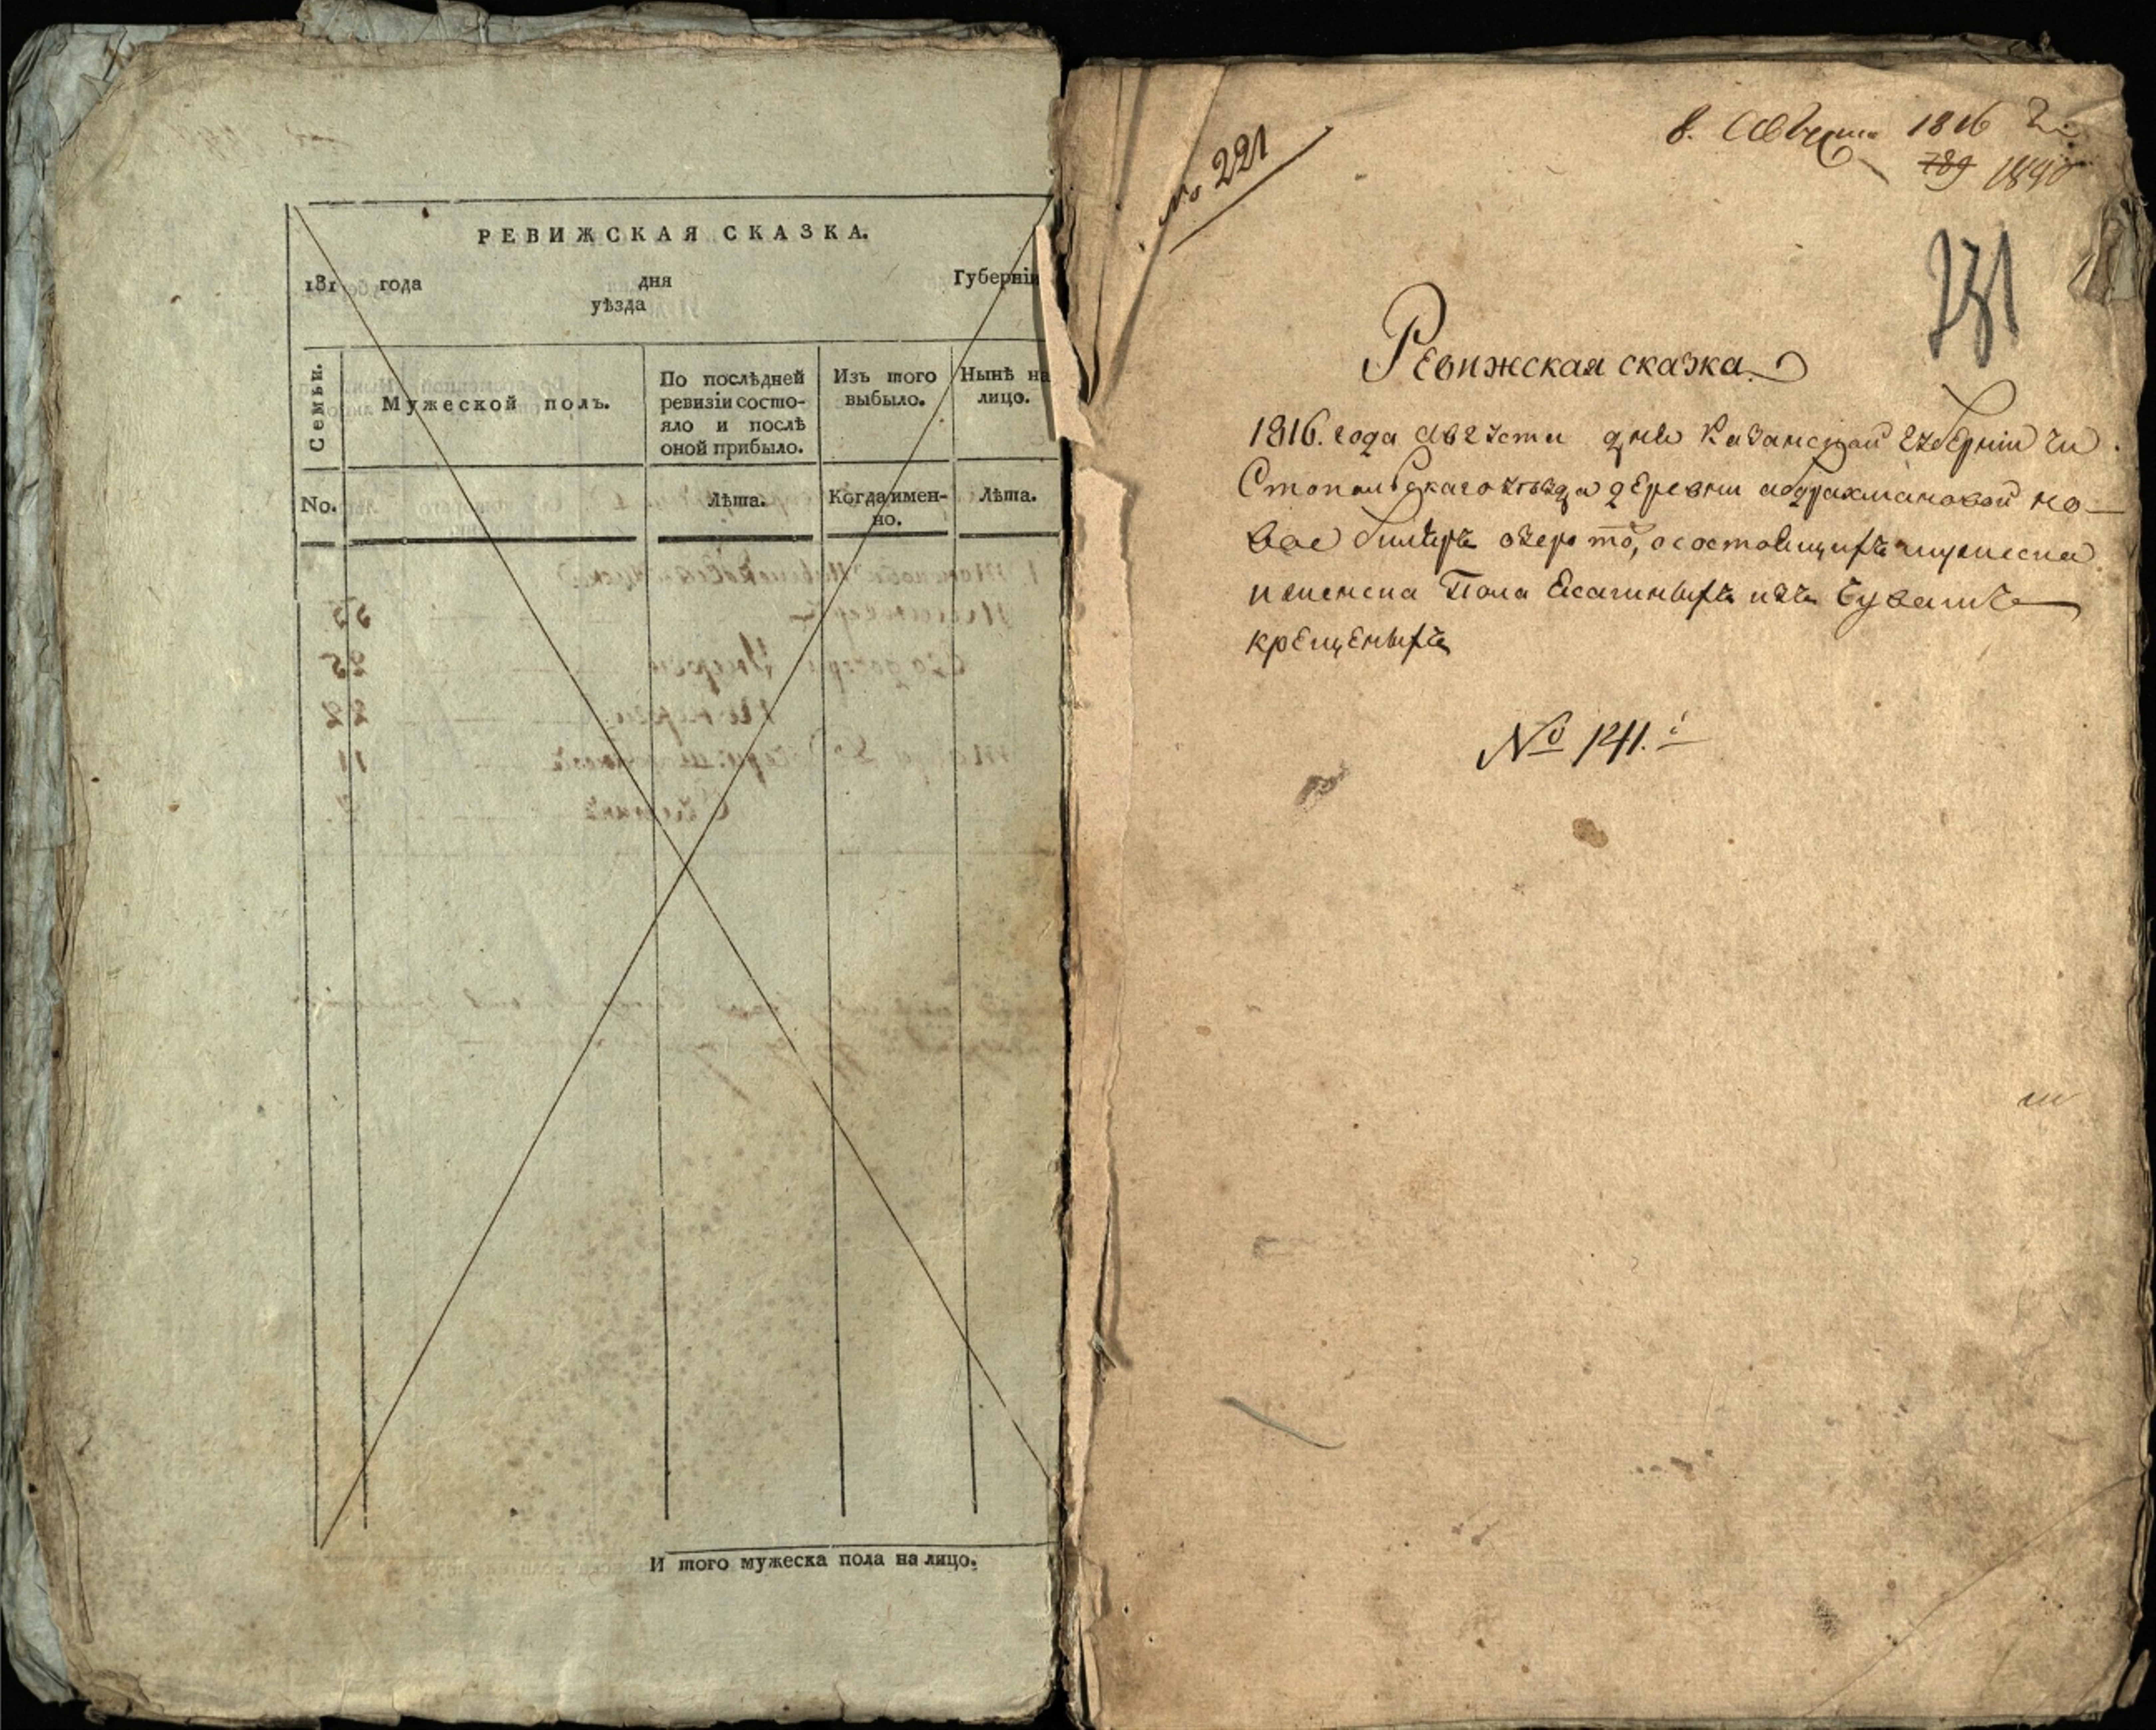 РЕВИЖСКАЯ СКАЗКА.
181 года дня Губерніи
уѣзда
Семьи.
Мужеской полъ.
По послѣдней
ревизіи состо-
яло и послѣ
оной прибыло.
Изъ того
выбыло.
Нынѣ на
лицо.
No.
Лѣта.
Когда имен-
но.
Лѣта.
И того мужеска пола на лицо.
№ 221
8. Августа 1816
789 1840
231
Ревижская сказка
1816. года августа дня Казанской губерніи Чи
стопольскаго уѣзда деревни абдрахмановой но-
вое биляръ озеро тоѣ, о состоящихъ мужеска
и женска Пола Ясашныхъ изъ Чувашъ
крещеныхъ
№ 141.